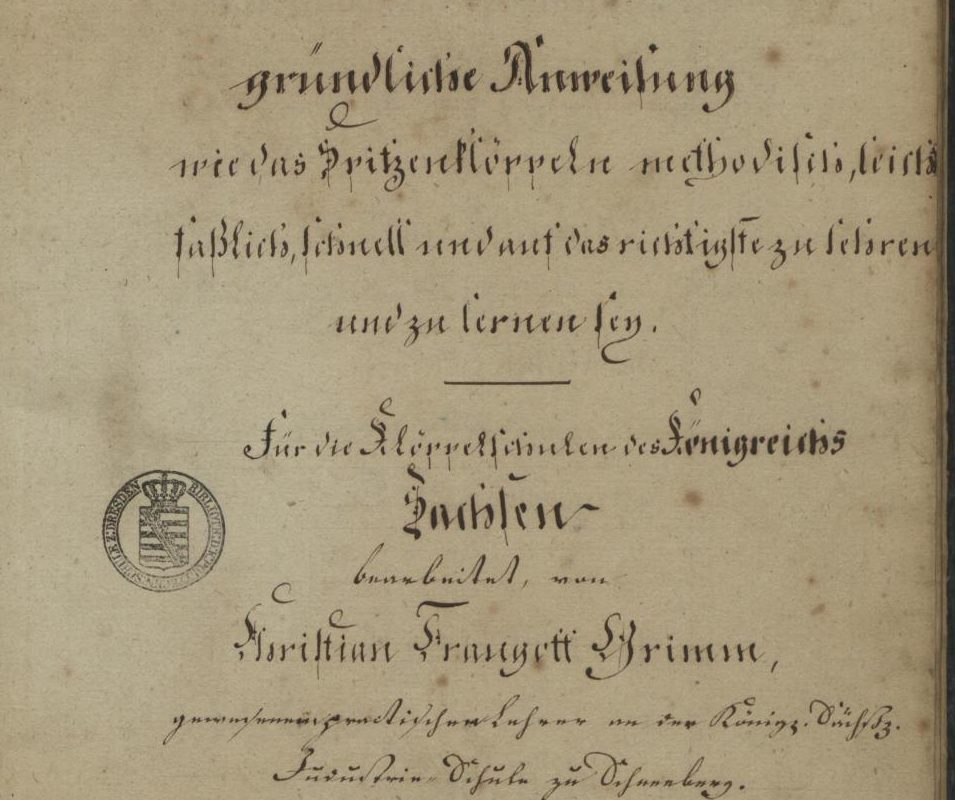 gründliche Anweisung
wie das Spitzenklöppeln methodisch, leicht
faßlich, schnell und auf das richtigste zu lehren
und zu lernen sey.
Für die Klöppelschulen des Königreichs
Sachsen
bearbeitet, von
Christian Traugott Grimm,
gewesenem practischen Lehrer an der Königl. Sächß.
Industrie-Schule zu Schneeberg.